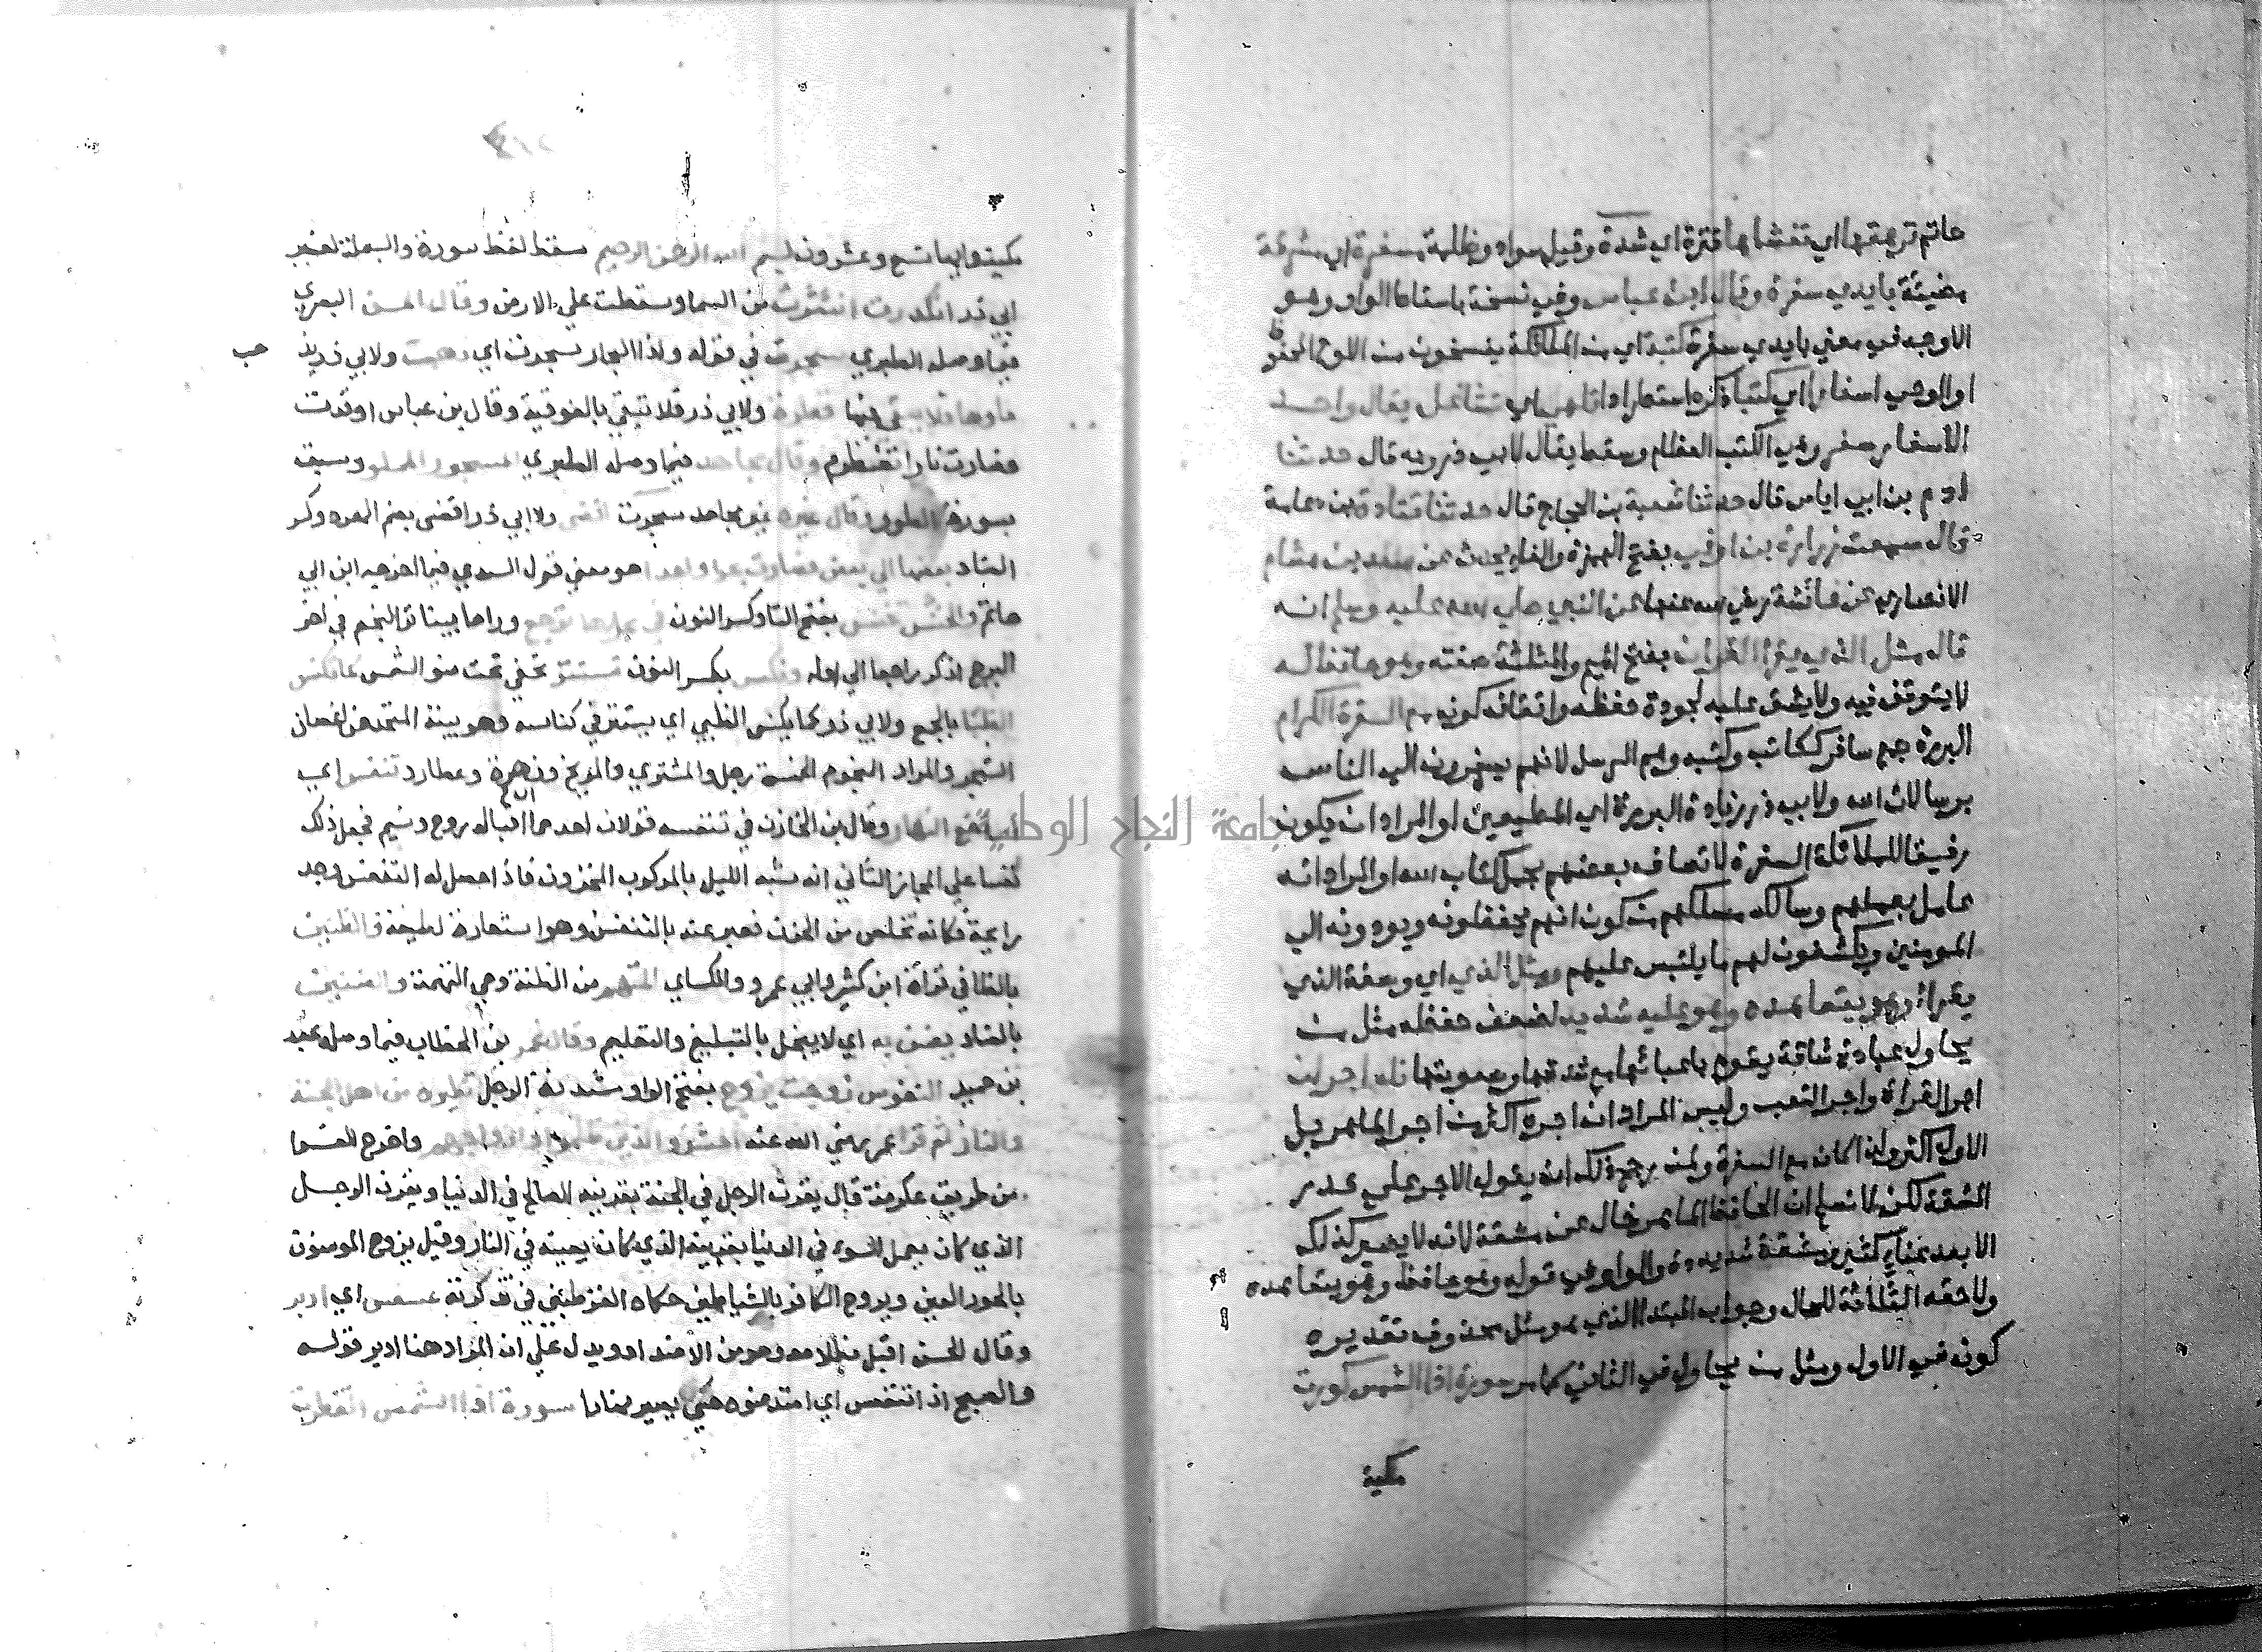 حاتم ترهقها اي تغشاها قترة اي شدة وقيل سواد وظلمة مسفرة اي مشرقة
مضيئة بايدي سفرة وقال ابن عباس وفي نسخة باسقاط الواو وهو
الاوجه في معني بايدي سفرة كتبة اي من الملائكة ينسخون من اللوح المحفوظ
او الوحي اسفارا اي كتبا ذكره استطرادا تلهي اي تشاغل يقال واحد
الاسفار سفر وهي الكتب العظام وسقط يقال لابي ذر وبه قال حدثنا
ادم بن ابي اياس قال حدثنا شعبة بن الحجاج قال حدثنا قتادة بن دعامة
قال سمعت زرارة بن اوفي بفتح الهمزة والفا يحدث عن سعد بن هشام
الانصاري عن عائشة رضي الله عنها عن النبي صلي الله عليه وسلم انه
قال مثل الذي يقرا القران بفتح الميم والمثلثة صفته وهو حافظ له
لا يتوقف فيه ولا يشق عليه لجودة حفظه واتقانه كونه مع السفرة الكرام
البررة جمع سافر ككاتب وكتبه وهم الرسل لانهم يسفرون الي الناس
برسالات الله ولابي ذر زيادة البررة اي المطيعين او المراد ان يكون
رفيقا للملائكة السفرة لاتصاف بعضهم بحمل كتاب الله او المراد انه
عامل بعملهم وسالك مسلكهم من كون انهم يحفظونه ويودونه الي
المومنين ويكشفون لهم ما يلتبس عليهم ومثل الذي اي وصفة الذي
يقراه وهو يتعاهده وهو عليه شديد لضعف حفظه مثل من
يحاول عبادة شاقة يقوم باعبائها مع شدتها وصعوبتها فله اجران
اجر القراة واجر التعب وليس المراد ان اجره اكثر من اجر الماهر بل
الاول اكثر ولذا كان مع السفرة ولمن رجح ذلك ان يقول الاجر علي قدر
المشقة لكن لا نسلم ان الحافظ الماهر خال عن مشقة لانه لا يصير كذلك
الا بعد عناء كثير ومشقة شديدة والواو في قوله وهو حافظ وهو يتعاهده
ولاحقه الثلاثة للحال وجواب المبتدا الذي هو مثل محذوف تقديره
كونه في الاول ومثل من يحاول في الثاني كما مر سورة اذا الشمس كورت
مكية
مكية وايها تسع وعشرون بسم الله الرحمن الرحيم سقط لفظ سورة والبسملة لغير
ابي ذر انكدرت انتثرت من السما وسقطت علي الارض وقال الحسن البصري
فيما وصله الطبري سجرت في قوله واذا البحار سجرت اي ذهب ولابي ذر يذهب
ماوها فلا يبقي فيها قطرة ولابي ذر فلا تبقي بالفوقية وقال بن عباس اوقدت
فصارت نارا تضطرم وقال مجاهد فيما وصله الطبري المسجور المملو وسبق
بسورة الطور وقال غيره غير مجاهد سجرت افضي ولابي ذر افضي بضم الهمزه وكسر
الضاد بعضها الي بعض فصارت بحرا واحدا هو معني قول السدي فيما اخرجه ابن ابي
حاتم والخنس تخنس بفتح التا وكسر النون في مجراها ترجع وراها بينا تري النجم في اخر
البرج اذ كر راجعا الي اوله وتكنس بكسر النون تستتر تخفي تحت ضو الشمس كما تكنس
الظبا بالجمع ولابي ذر كما يكنس الظبي اي يستتر في كناسه وهو بيته المتخذ من اغصان
الشجر والمراد النجوم الخمسة زحل والمشتري والمريخ وزهرة وعطارد تنفس اي
ارتفع النهار وقال بن الخازن في تنفسه قولان احدهما ان في اقباله روح ونسيم فجعل ذلك
نفسا علي المجاز الثاني انه شبه الليل بالمكروب المحزون فاذا حصل له التنفس وجد
راحة فكانه تخلص من الحزن فعبر عنه بالتنفس وهو استعارة لطيفة والظنين
بالظا في قراة ابن كثير وابي عمرو والكساي المتهم من الظنة وهي التهمة والضنين
بالضاد يضن به اي لا يبخل بالتبليغ والتعليم وقال عمر بن الخطاب فيما وصله عبد
بن حميد النفوس زوجت يزوج بفتح الواو مشددة الرجل نظيره من اهل الجنة
والنار ثم قرا عمر رضي الله عنه احشروا الذين ظلموا وازواجهم واخرج الفرا
من طريق عكرمة قال يقرن الرجل في الجنة بقرينه الصالح في الدنيا ويقرن الرجل
الذي كان يعمل السوء في الدنيا بقرينه الذي كان يعينه في النار وقيل يزوج المومنون
بالحور العين ويزوج الكافر بالشياطين حكاه القرطبي في تذكرته عسعس اي ادبر
وقال الحسن اقبل بظلامه وهو من الاضداد ويدل علي ان المراد هنا ادبر قوله
والصبح اذا تنفس اي امتد ضوه حتي يصير نهارا سورة اذا الشمس انفطرت